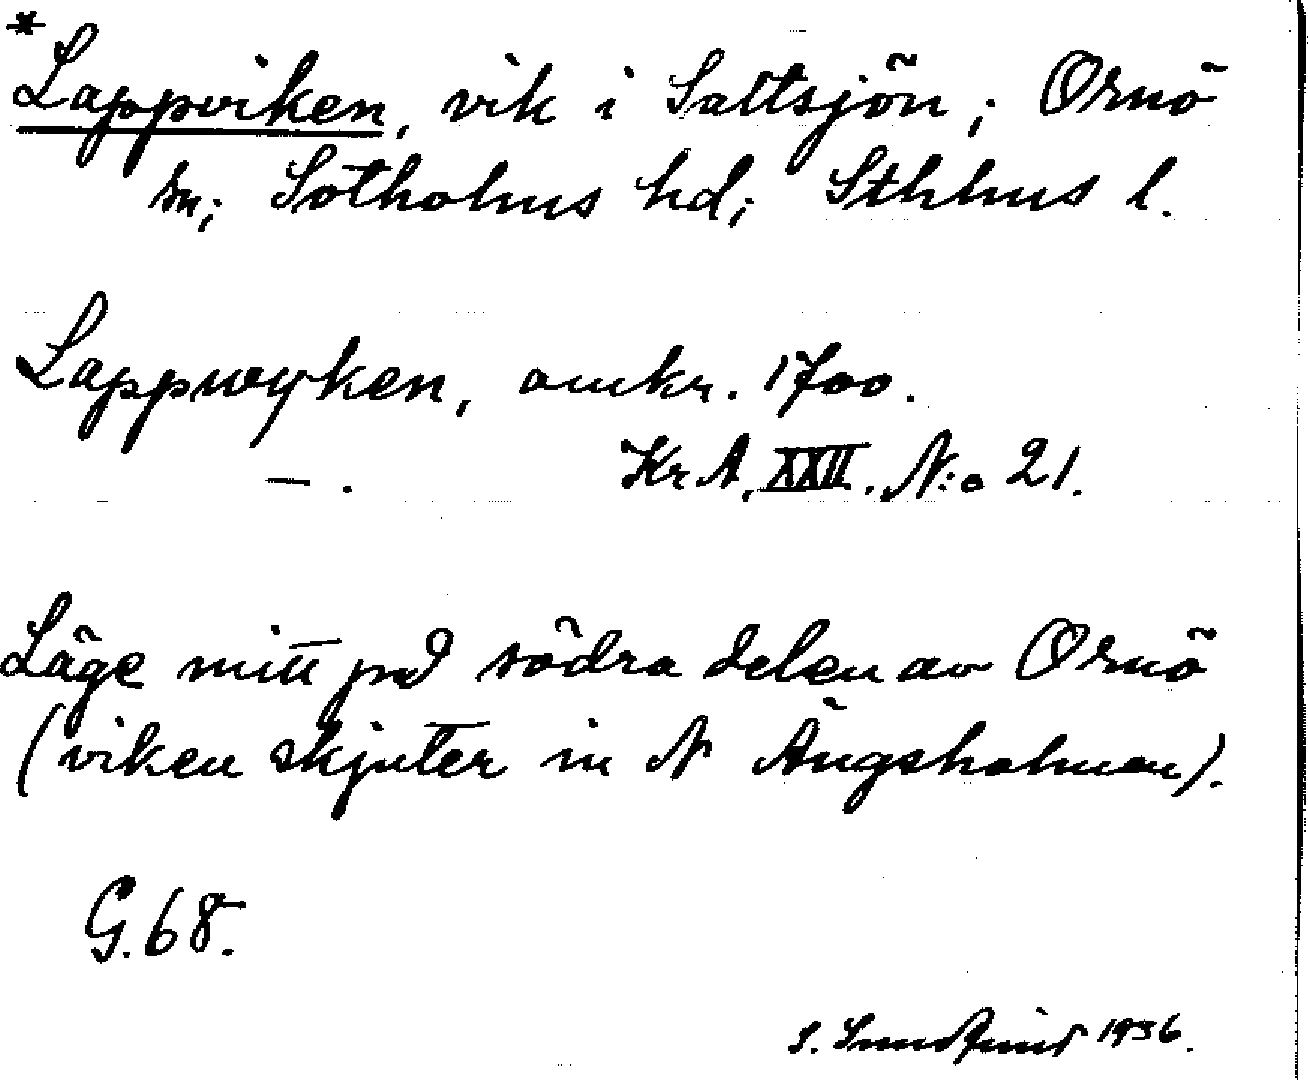 *Lappviken, vik i Saltsjön; Ornö
sn; Sotholms hd; Sthlms l.
Lappwyken, omkr. 1700.
— . Kr A. XXII. N:o 21.
Läge mitt på södra delen av Ornö
(viken skjuter in N Ängsholmen).
G.68.
S. 1936.